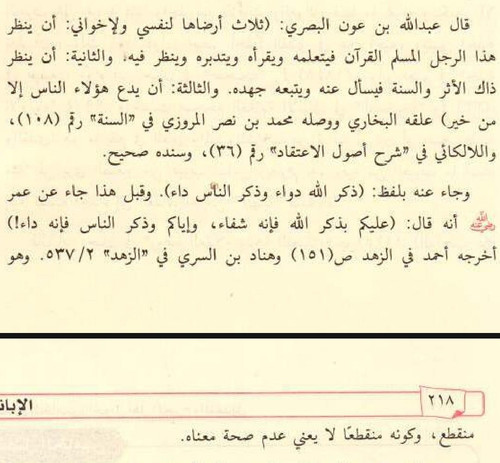 قال عبدالله بن عون البصري: (ثلاث أرضاها لنفسي ولإخواني: أن ينظر
هذا الرجل المسلم القرآن فيتعلمه ويقرأه ويتدبره وينظر فيه، والثانية: أن ينظر
ذاك الأثر والسنة فيسأل عنه ويتبعه جهده. والثالثة: أن يدع هؤلاء الناس إلا
من خير) علقه البخاري ووصله محمد بن نصر المروزي في "السنة" رقم (١٠٨)،
واللالكائي في "شرح أصول الاعتقاد" رقم (٣٦)، وسنده صحيح.
وجاء عنه بلفظ: (ذكر الله دواء وذكر الناس داء). وقبل هذا جاء عن عمر
رضي الله عنه أنه قال: (عليكم بذكر الله فإنه شفاء، وإياكم وذكر الناس فإنه داء!)
أخرجه أحمد في الزهد ص(١٥١) وهناد بن السري في "الزهد" ٥٣٧/٢. وهو
٢١٨
منقطع، وكونه منقطعًا لا يعني عدم صحة معناه.